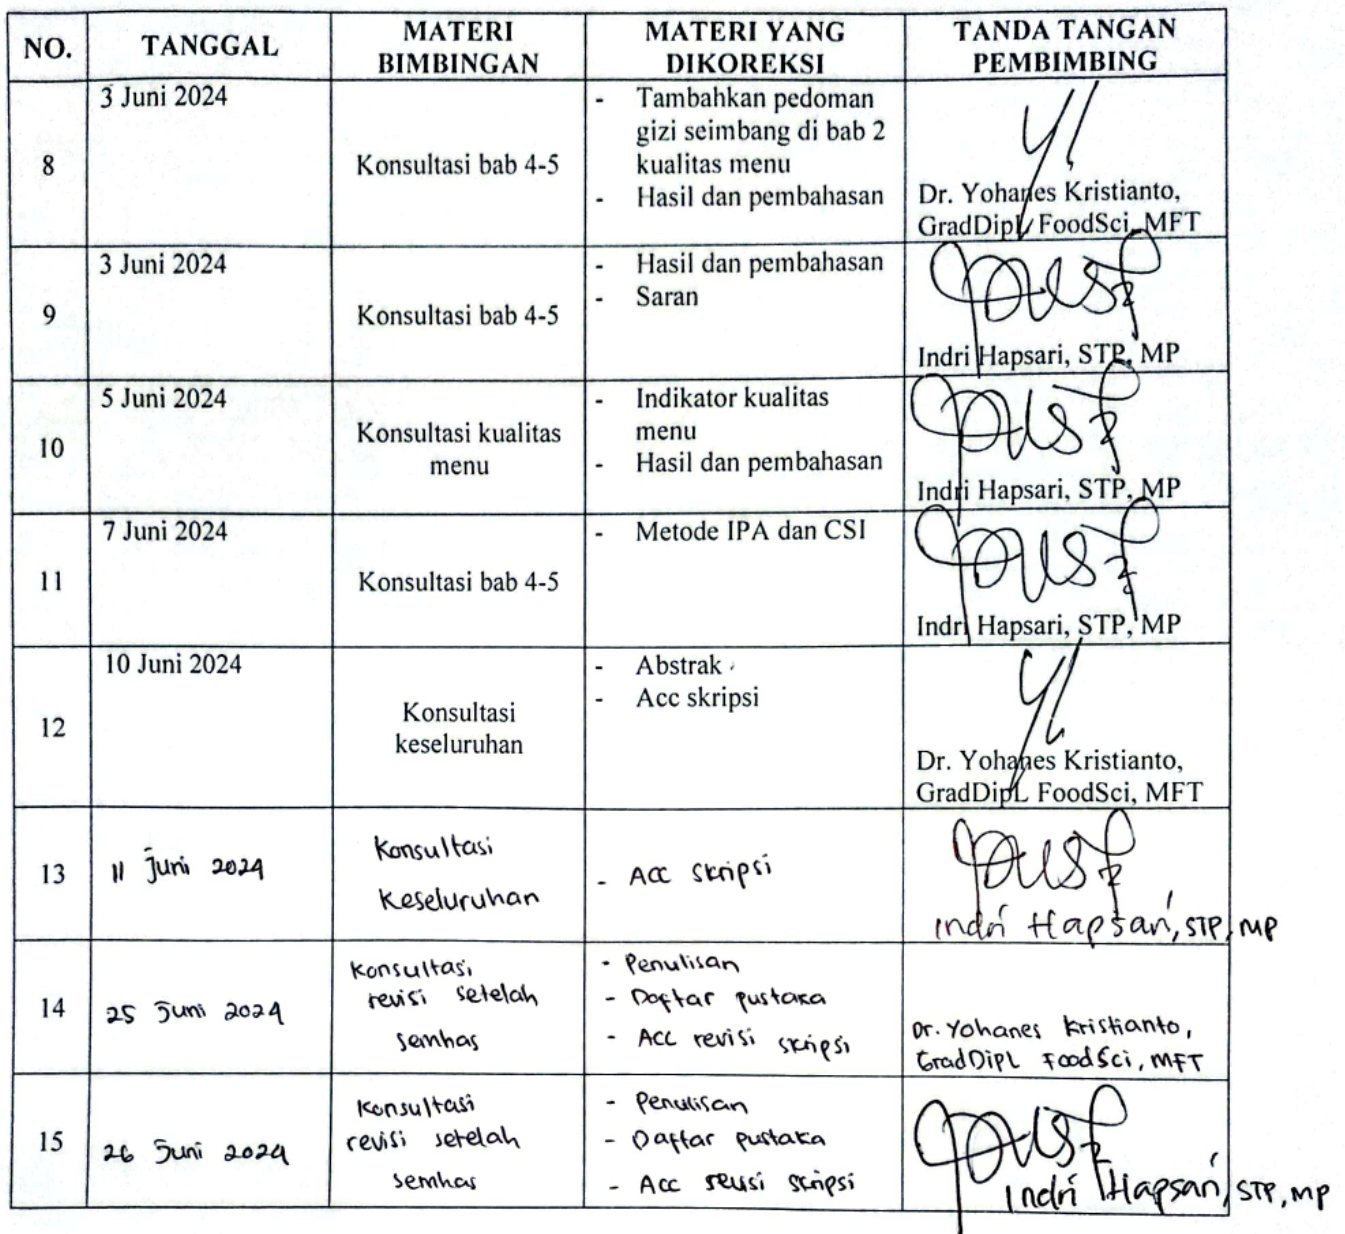 NO.
TANGGAL
MATERI
BIMBINGAN
MATERI YANG
DIKOREKSI
TANDA TANGAN
PEMBIMBING
8
3 Juni 2024
Konsultasi bab 4-5
- Tambahkan pedoman
gizi seimbang di bab 2
kualitas menu
- Hasil dan pembahasan
Dr. Yohanes Kristianto,
GradDipL FoodSci, MFT
9
3 Juni 2024
Konsultasi bab 4-5
- Hasil dan pembahasan
- Saran
Indri Hapsari, STP, MP
10
5 Juni 2024
Konsultasi kualitas
menu
- Indikator kualitas
menu
- Hasil dan pembahasan
Indri Hapsari, STP, MP
11
7 Juni 2024
Konsultasi bab 4-5
- Metode IPA dan CSI
Indri Hapsari, STP, MP
12
10 Juni 2024
Konsultasi
keseluruhan
- Abstrak
- Acc skripsi
Dr. Yohanes Kristianto,
GradDipL FoodSci, MFT
13
11 Juni 2024
Konsultasi
Keseluruhan
- Acc skripsi
Indri Hapsari, STP, MP
14
25 Juni 2024
Konsultasi
revisi setelah
semhas
- Penulisan
- Daftar pustaka
- Acc revisi skripsi
Dr. Yohanes Kristianto,
GradDipL FoodSci, MFT
15
26 Juni 2024
Konsultasi
revisi setelah
semhas
- Penulisan
- Daftar pustaka
- Acc revisi skripsi
Indri Hapsari, STP, MP